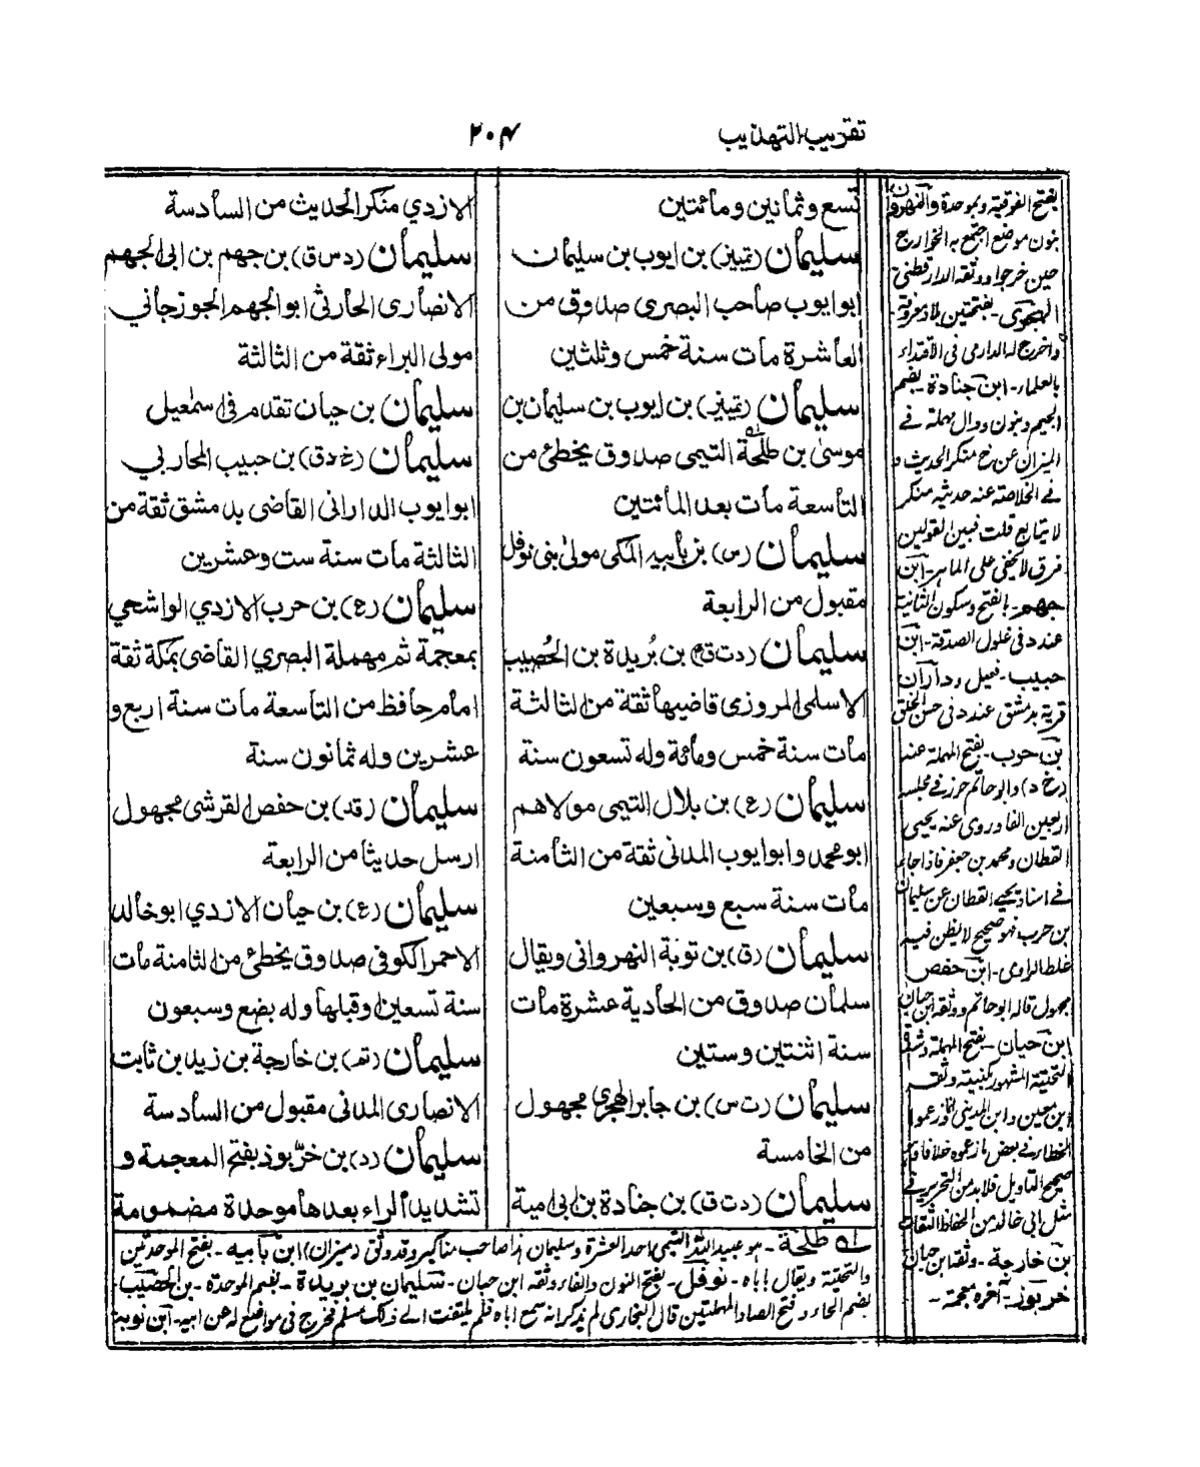 تقريب التهذيب
٢٠٤
تسع وثمانين ومائتين
سليمان (تمييز) بن ايوب بن سليمان
ابو ايوب صاحب البصرى صدوق من
العاشرة مات سنة خمس وثلثين
سليمان (تمييز) بن ايوب بن سليمان بن
موسى بن طلحة التيمى صدوق يخطئ من
التاسعة مات بعد المائتين
سليمان (س) بن بابيه المكى مولى بنى نوفل
مقبول من الرابعة
سليمان (دت ق م) بن بُريدة بن الحُصيب
الاسلمى المروزى قاضيها ثقة من الثالثة
مات سنة خمس ومائة وله تسعون سنة
سليمان (ع) بن بلال التيمى مولاهم
ابو محمد وابو ايوب المدنى ثقة من الثامنة
مات سنة سبع وسبعين
سليمان (ق) بن توبة النهروانى ويقال
سلمان صدوق من الحادية عشرة مات
سنة اثنتين وستين
سليمان (ت س) بن جابر الهجرى مجهول
من الخامسة
سليمان (دت ق) بن جنادة بن ابى امية
الازدي منكر الحديث من السادسة
سليمان (د س ق) بن جهم بن ابى الجهم
الانصارى الحارثى ابو الجهم الجوزجاني
مولى البراء ثقة من الثالثة
سليمان بن حبان تقدم فى اسمعيل
سليمان (خ د ق) بن حبيب المحاربي
ابو ايوب الدارانى القاضى بدمشق ثقة من
الثالثة مات سنة ست وعشرين
سليمان (ع) بن حرب الازدي الواشحي
بمعجمة ثم مهملة البصري القاضى بمكة ثقة
امام حافظ من التاسعة مات سنة اربع و
عشرين وله ثمانون سنة
سليمان (قد) بن حفص القرشى مجهول
ارسل حديثا من الرابعة
سليمان (ع) بن حيان الازدي ابو خالد
الاحمر الكوفى صدوق يخطئ من الثامنة مات
سنة تسعين او قبلها وله بضع وسبعون
سليمان (تم) بن خارجة بن زيد بن ثابت
الانصارى المدنى مقبول من السادسة
سليمان (د) بن خرّبوذ بفتح المعجمة و
تشديد الراء بعدها موحدة مضمومة
بفتح الفوقية وبموحدة والنهروان
بنون موضع اجتمع به الخوارج
حين خرجوا ووثقه الدارقطنى
الهجرى - بفتحتين
واخرج له الدارمى فى الاقتداء
بالعلماء - ابن جنادة بضم
الجيم وبنون ودال مهملة فے
الميزان عن خ منكر الحديث و
فے الخلاصة عنه حديثه منكر
لا يتابع قلت فبين القولين
فرق لا يخفى على الماهر - ابن
جهم - بالفتح وسكون الثانية
عند د فى غلول الصدقة - ابن
حبيب - فعيل وداران
قرية بدمشق عند د فى حسن الخلق
بن حرب - بفتح المهملة عند
(خ د) وابو حاتم حرز فے مجلسه
اربعين الفا وروى عنه يحيى
القطان ومحمد بن جعفر فاذا جاء
فے اسناد يحيى القطان عن سليمان
بن حرب فهو صحيح لا يظن فيه
غلط الراوى - ابن حفص
مجهول قاله ابو حاتم ووثقه ابن حبان
ابن حيان - بفتح المهملة وشدة
التحتية المشهور بكنيته وثقه
ابن معين وابن المدينى
صحيح التاويل فلا بد من التحرير فے
مثل ابى خالد من الحفاظ الثقات
بن خارجة - وثقه ابن حبان
خربوذ - آخره معجمة -
له طلحة - هو عبيد الله التيمى احد العشرة وسليمان هذا صاحب مناكير وقد وثق (ميزان) ابن بابيه - بفتح الموحدتين
والتحتية ويقال اباه - نوفل - بفتح النون والفاء وثقه ابن حبان - سليمان بن بريدة - بضم الموحدة - بن الحصيب
بضم الحاء وفتح الصاد المهملتين قال البخارى لم يذكر انه سمع اباه فلم يلتفت الے ذلك مسلم فخرج فى مواضع له عن ابيه - ابن توبة